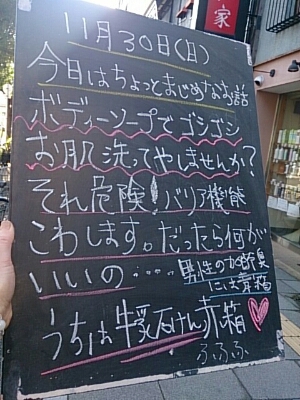 家
11月30日(日)
今日はちょっとまじめなお話
ボディーソープでゴシゴシ
お肌洗ってやしませんか?
それ危険!バリア機能
こわします。だったら何が
いいの‥‥男性の加齢臭
には青箱
うちは牛乳石けん赤箱
ふふふ